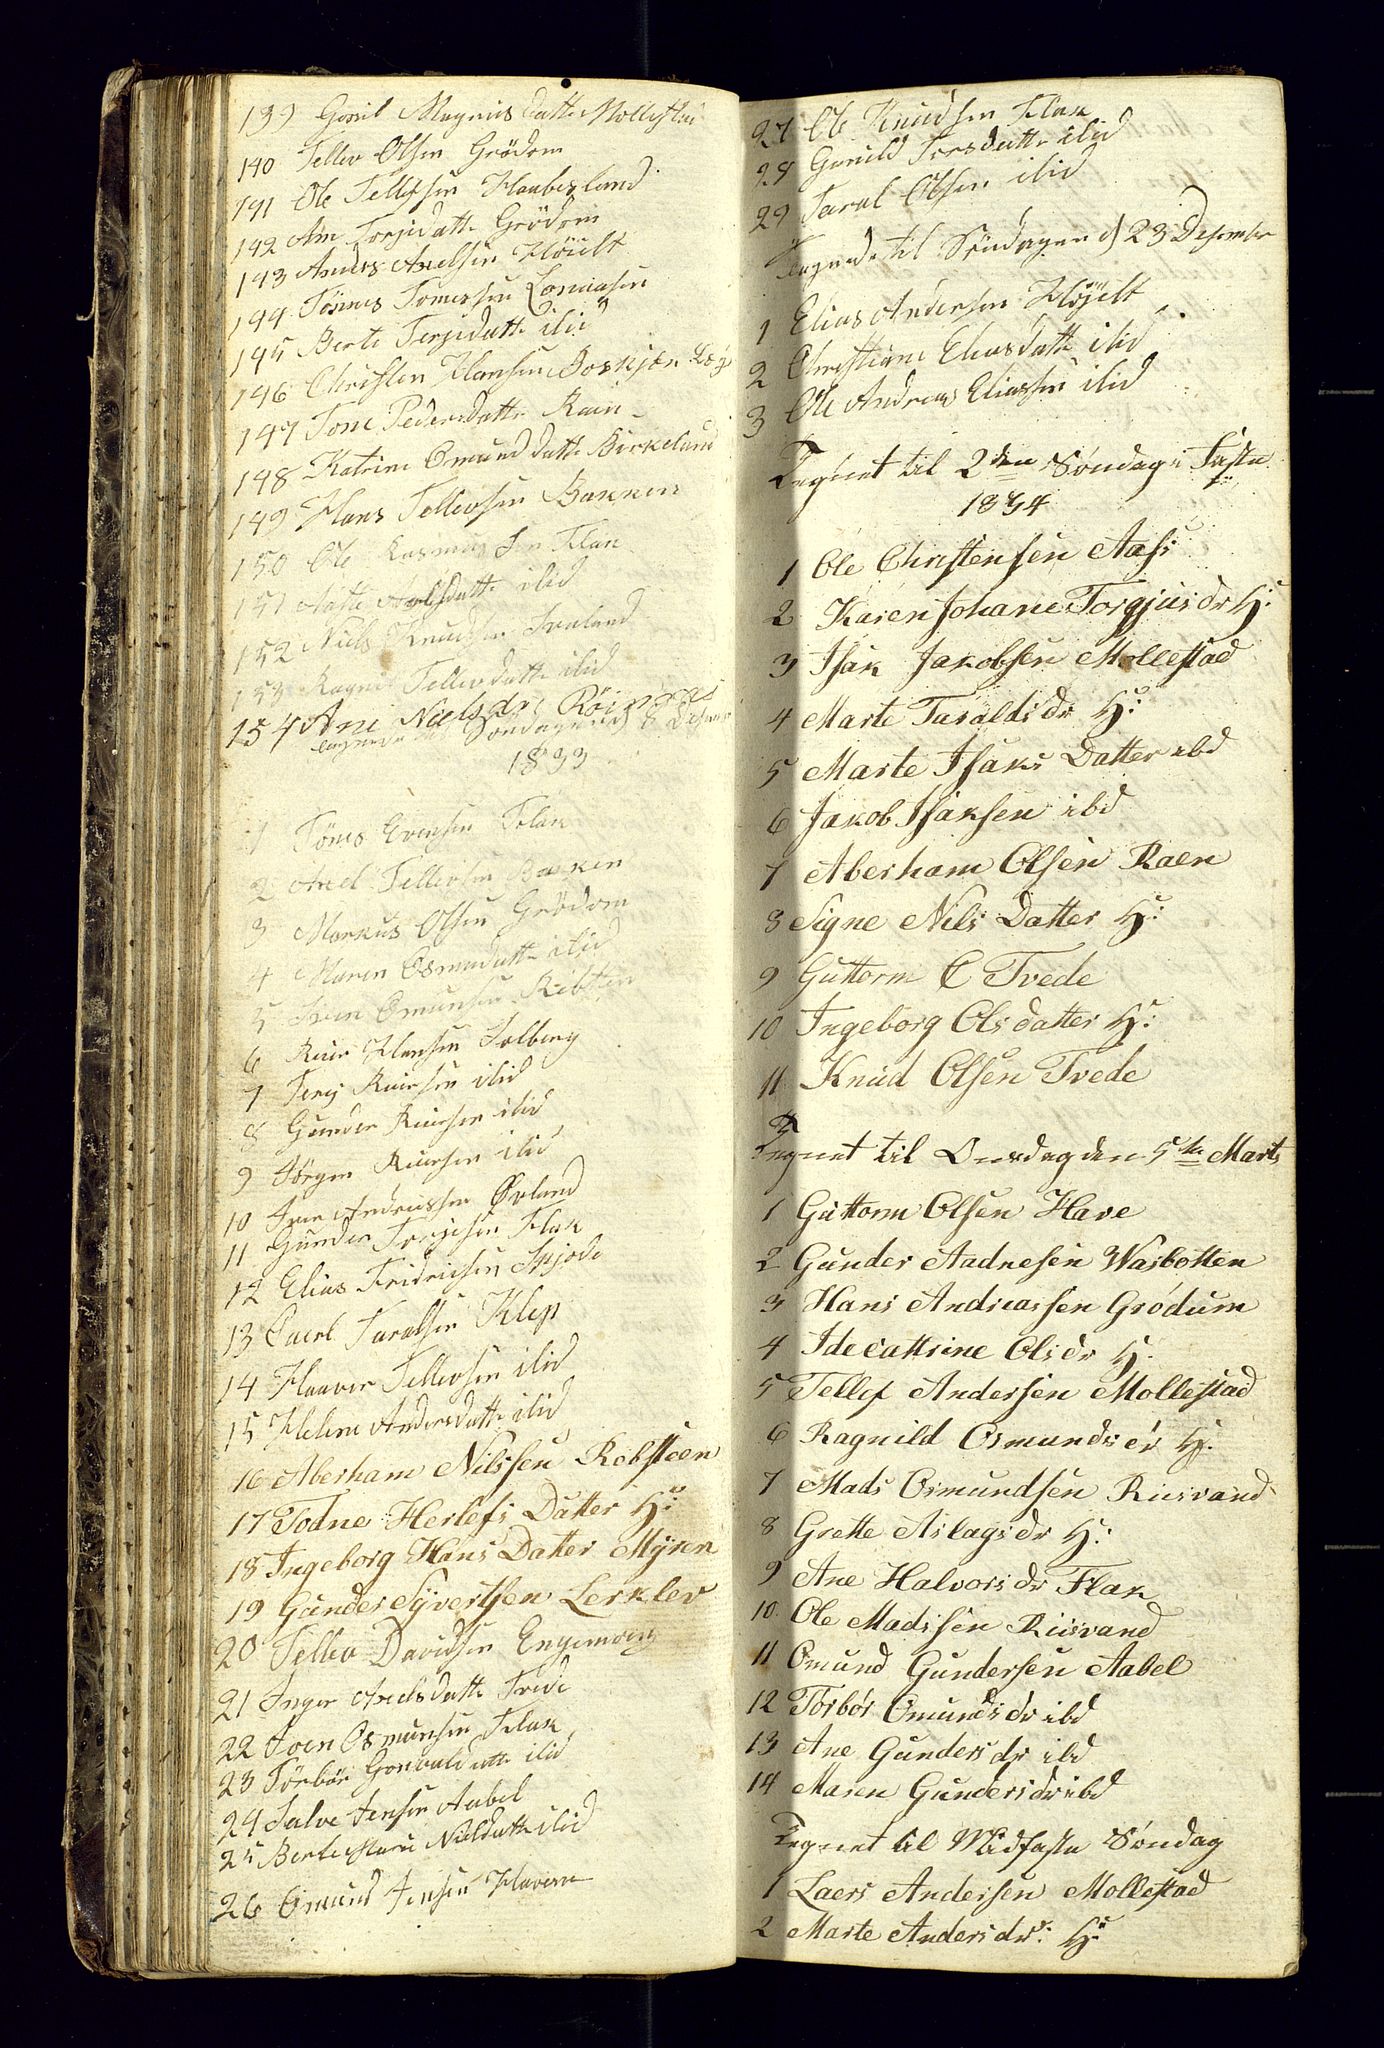 139 Gonil Magnus datte Mollestad
140 Tellev Olsen Grödom
141 Ole Tellefsen Haabesland
142 Ane Terjedatte Grödom
143 Anders Axelsen Höielt
144 Tönnes Tomessen
145 Berte Terjedatte ibid
146 Christen Hansen
147 Tone Pedersdatte Raen
148 Katrine Omund datte Birkeland
149 Hans Tellevsen Bakken
150 Ole Rasmussen Flak
151 Aaste ibid
152 Niels Knudsen
153 Tellevdatte ibid
154 Ane Nielsdr:
Tegnede til Söndagen d 8 Desem
1833
1 Tönes Evensen Flak
2 Axel Tellevsen Bakken
3 Markus Olsen Grödom
4 Maren Osmundatte ibid
5 Sven Omunsen Ribsten
6 Reier Hansen Solberg
7 Terj Reiersen ibid
8 Gunder Reiersen ibid
9 Jörgen Reiersen ibid
10 Andreassen Övland
11 Gunder Terjesen Flak
12 Elias Fridrichsen
13 Taralsen Klep
14 Haaver Tellevsen ibid
15 Helene Andersdatte ibid
16 Aberham Nilssen Rebsteen
17 Todne Herlefs Datter H:
18 Ingeborg Hans Datter Myren
19 Gunder Syvertsen Lerklev
20 Tellev Davidsen
21 Inger Axelsdatte Trede
22 Joen Osmunsen Flak
23 Törbör Gonvaldatte ibid
24 Salve Jensen Aabel
25 Berte Marie Nielsdatte ibid
26 Omund Jensen Haven
27 Ole Knudsen Flak
28 Gunild Terjsdatte ibid
29 Taral Olsen ibid
Tegnede til Söndagen d 23 Desember
1 Elias Andersen Höjelt
2 Christiane Eliasdatte ibid
3 Ole Andreas Eliassen ibid
Tegnet til 2den Söndag i Faste
1834
1 Ole Christensen Aass
2 Karen Johane Torgjus dr H:
3 Isak Jakobsen Mollestad
4 Marte Taralds dr H:
5 Marte Isaks Datter ibd
6 Jakob Isaksen ibd
7 Aberham Olsen Raen
8 Signe Nils Datter H:
9 Guttorm C Tvede
10 Ingeborg Ols datter H:
11 Knud Olsen Tvede
Tegnet til Onsdag den 5te Marts
1 Guttorm Olsen Have
2 Gunder Aadnesen Wasbotten
3 Hans Andreassen Grödum
4 Idecattrine Ols dr H.
5 Tellef Andersen Mollestad
6 Ragnild Osmunds dr H.
7 Mads Osmundsen Riisvand
8 Grette Aslags dr H:
9 Ane Halvors dr Flak
10 Ole Madssen Riisvand
11 Omund Gundersen Aabel
12 Torbör Omunds dr ibd
13 Ane Gunders dr ibd
14 Maren Gunders dr ibd
Tegnet til Midfaste Söndag
1 Laers Andersen Mollestad
2 Marte Anders dr: H: